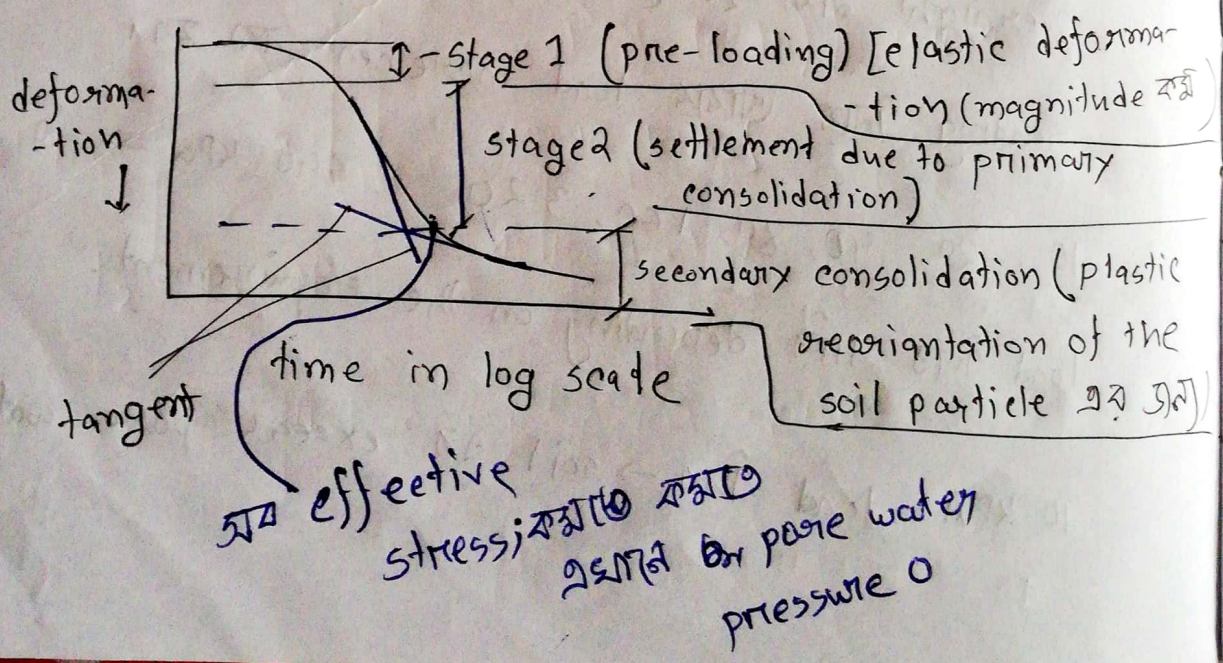 deforma-
-tion
↓
stage 1 (pre-loading) [elastic deforma-
-tion (magnitude কম)
stage2 (settlement due to primary
consolidation)
secondary consolidation (plastic
reoriantation of the
soil particle এর জন্য)
time in log scale
tangent
সব effective
stress; কমতে কমতে
এখানে pore water
pressure 0